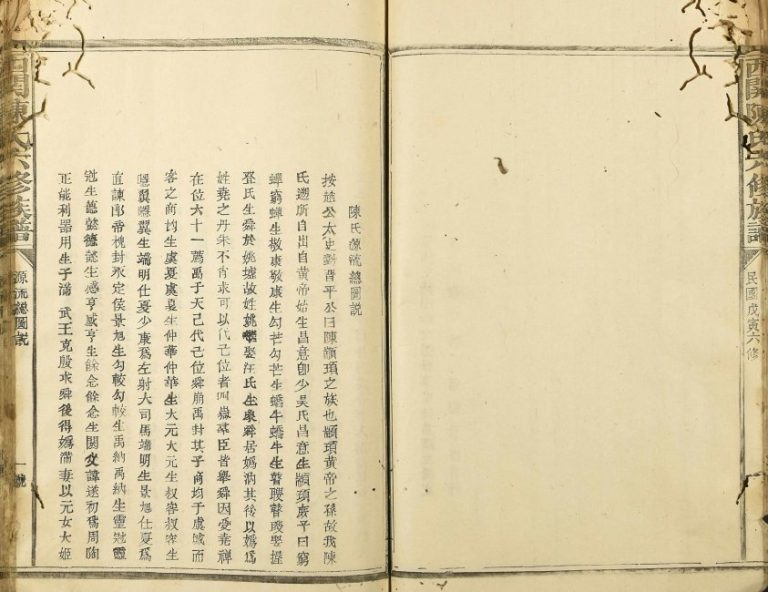 西關陳氏六修族譜
民國戊寅六修
陳氏源流總圖説
按趙公太史對晋平公曰陳顓頊之族也顓頊黃帝之孫故我陳
氏遡所自出自黃帝始生昌意卽少昊氏昌意生顓頊康平曰窮
蟬窮蟬生敬康敬康生勾芒勾芒生蟠牛蟠牛生瞽瞍瞽瞍娶握
登氏生舜於姚墟故姓姚娶汪氏生象舜居嬀汭其後以嬀爲
姓堯之丹朱不肖求可以代己位者四嶽羣臣皆舉舜因受堯禪
在位六十一薦禹于天己代己位舜崩禹封其子商均于虞城而
客之商均生虞夏虞夏生仲華仲華生大元大元生叔宰叔宰生
曀翼曀翼生端明仕夏少康爲左射大司馬端明生景旭仕夏爲
直諫郎帝槐封永定侯景旭生勾較勾較生禹納禹納生靈冠靈
冠生德懿德懿生感亨感亨生餘念餘念生閼父諱遂初爲周陶
正能利器用生子滿 武王克殷求舜後得嬀滿妻以元女大姬
西關陳氏六修族譜
源流總圖説
一號